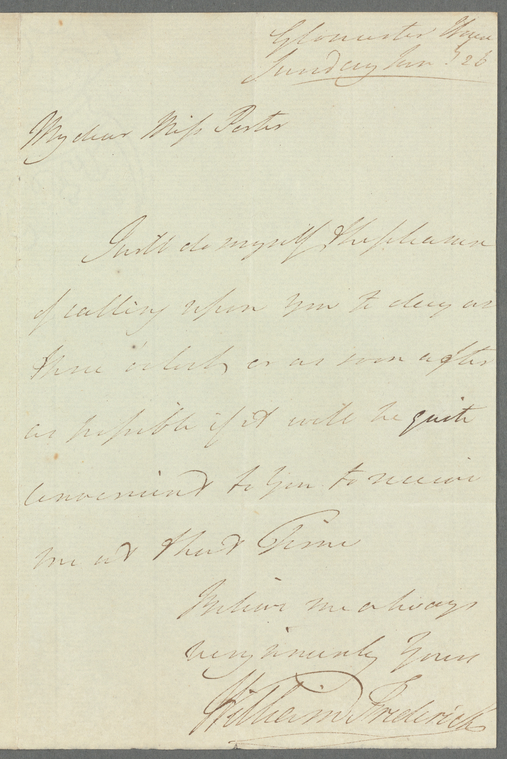 Gloucester House
Sunday Jun.e 26
My dear Miss Porter
I will do myself the pleasure
of calling upon you to day at
three o'clock or as soon after
as possible if it will be quite
convenient to You to receive
me at that Time
Believe me always
very sincerely Yours
William Frederick